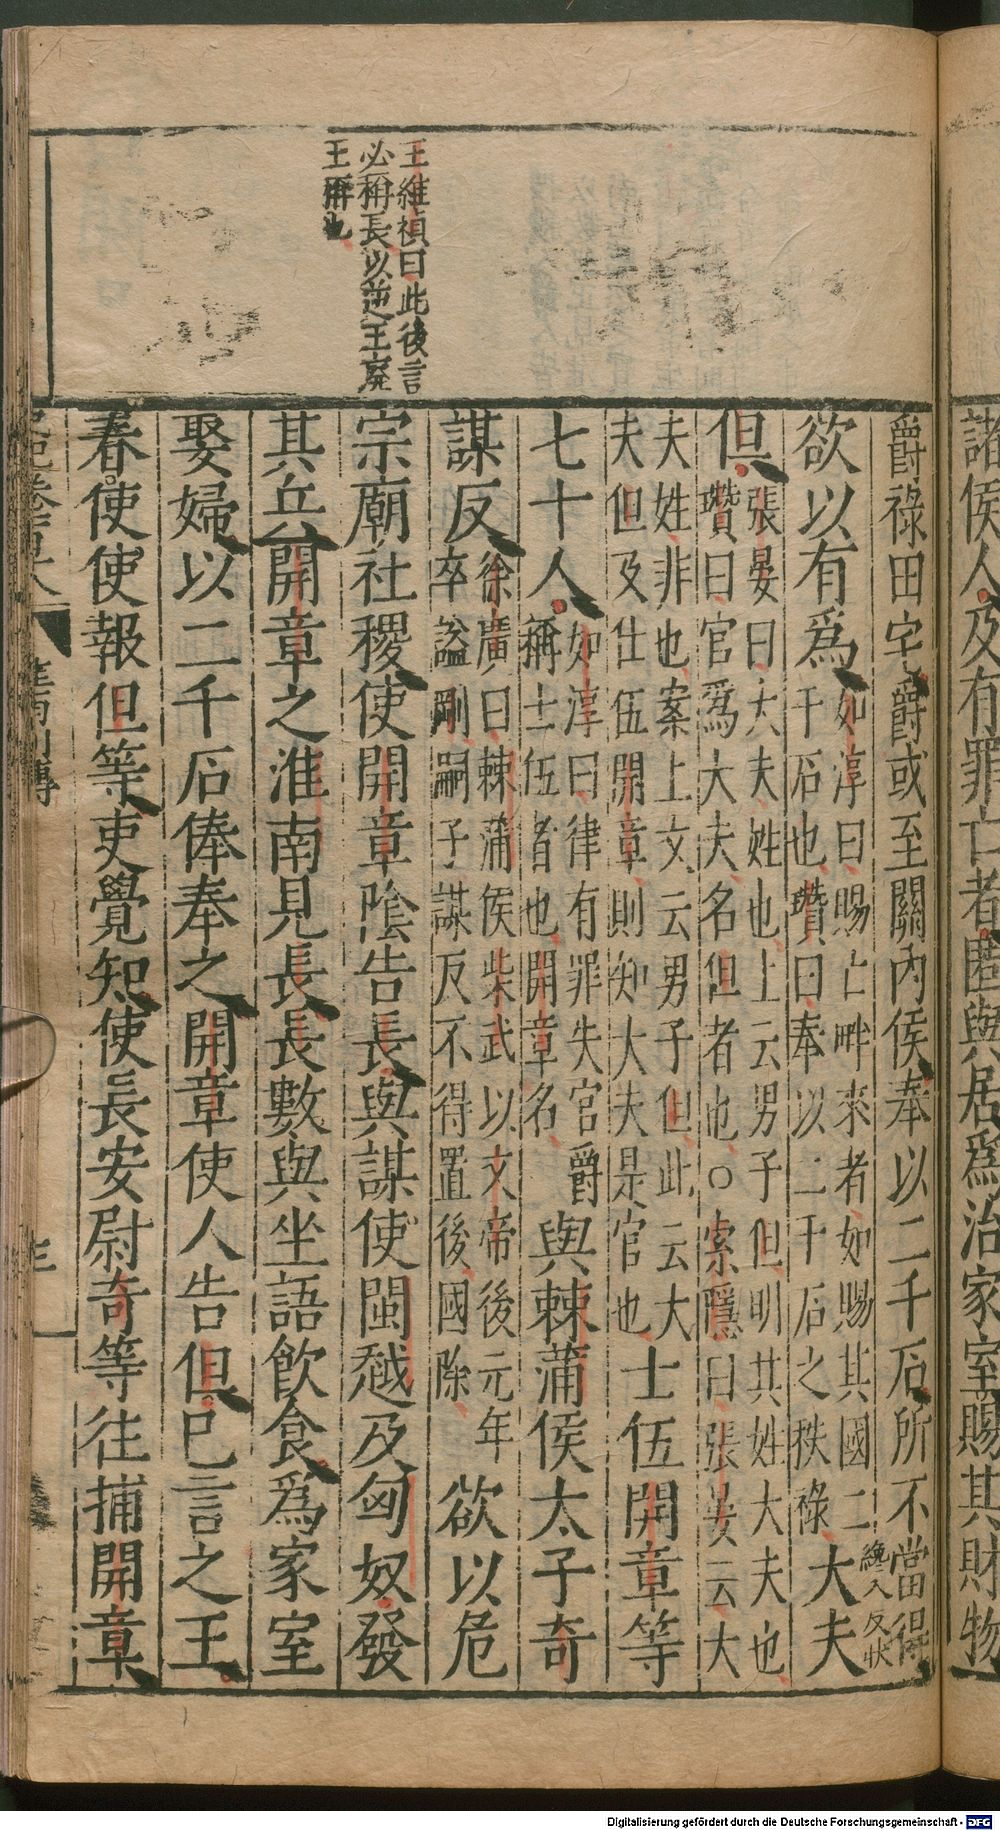 諸侯人及有罪亡者匿與居爲治家室賜其財物
王維禎曰此後言
必稱長以逆王廢
王稱也
爵祿田宅爵或至關內侯奉以二千石所不當得
欲以有爲如淳曰賜亡畔來者如賜其國二
千石也瓚曰奉以二千石之秩祿大夫
但張晏曰大夫姓也上云男子但明其姓大夫也
瓚曰官爲大夫名但者也○索隱曰張晏云大
夫姓非也案上文云男子但此云大
夫但及仕伍開章則知大夫是官也士伍開章等
七十人如淳曰律有罪失官爵
稱士伍者也開章名與棘蒲侯太子奇
謀反徐廣曰棘蒲侯柴武以文帝後元年
卒謚剛嗣子謀反不得置後國除欲以危
宗廟社稷使開章陰告長與謀使閩越及匈奴發
其兵開章之淮南見長長數與坐語飲食爲家室
娶婦以二千石俸奉之開章使人告但已言之王
春使使報但等吏覺知使長安尉奇等往捕開章
Digitalisierung gefördert durch die Deutsche Forschungsgemeinschaft - DFG